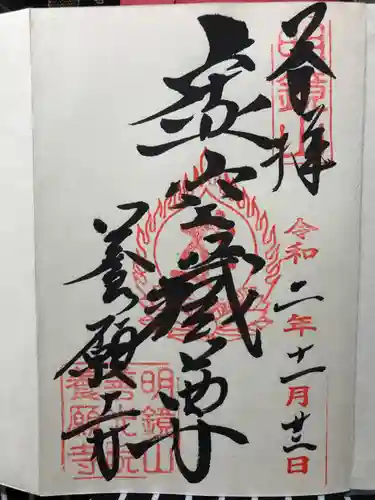 奉拝
明鏡山
令和二年十一月廿三日
虚空蔵尊
養願寺
明鏡山
養願寺